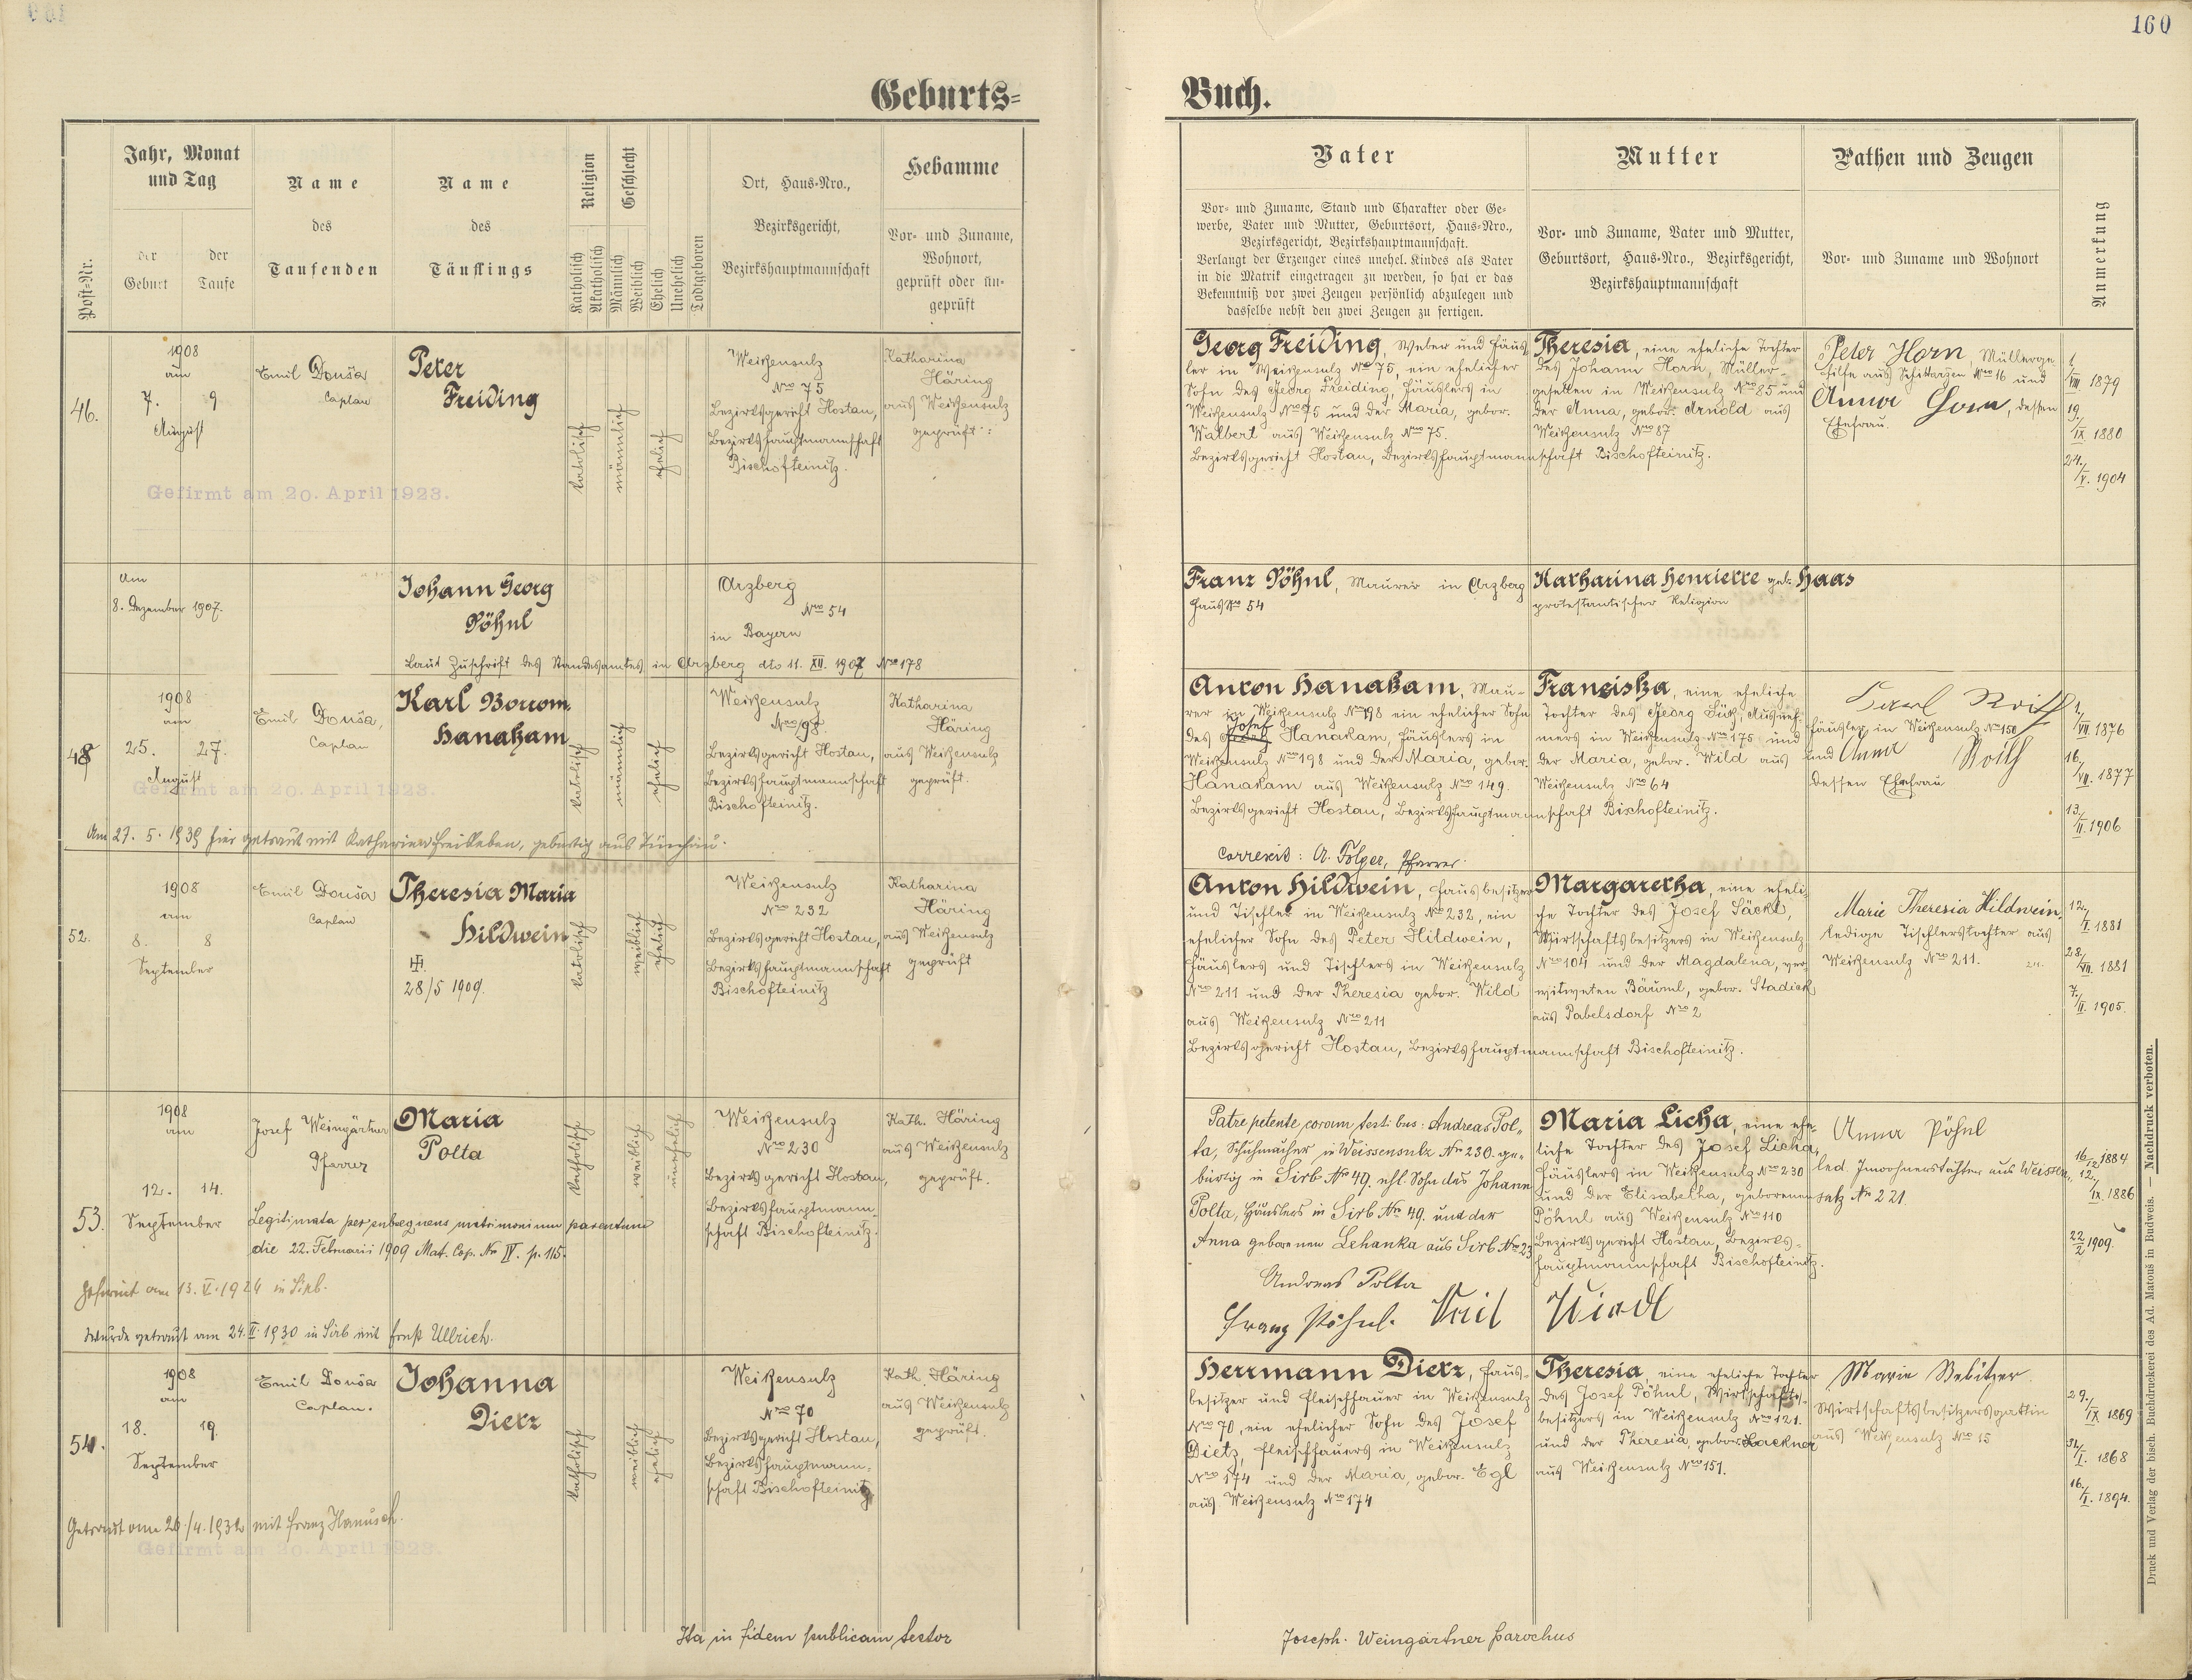 160
Geburts=
Buch.
Post-Nr.
Jahr, Monat
und Tag
der
Geburt
der
Taufe
Name
des
Taufenden
Name
des
Täuflings
Religion
Katholisch
Akatholisch
Geschlecht
Männlich
Weiblich
Ehelich
Unehelich
Todtgeboren
Ort, Haus-Nro.,
Bezirksgericht,
Bezirkshauptmannschaft
Hebamme
Vor- und Zuname,
Wohnort,
geprüft oder un-
geprüft
Vater
Vor- und Zuname, Stand und Charakter oder Ge-
werbe, Vater und Mutter, Geburtsort, Haus-Nro.,
Bezirksgericht, Bezirkshauptmannschaft.
Verlangt der Erzeuger eines unehel. Kindes als Vater
in die Matrik eingetragen zu werden, so hat er das
Bekenntniß vor zwei Zeugen persönlich abzulegen und
dasselbe nebst den zwei Zeugen zu fertigen.
Mutter
Vor- und Zuname, Vater und Mutter,
Geburtsort, Haus-Nro., Bezirksgericht,
Bezirkshauptmannschaft
Pathen und Zeugen
Vor- und Zuname und Wohnort
Anmerkung
46.
1908
am
7. 9
August
Gefirmt am 20. April 1923.
Emil Douša
Caplan
Peter
Freiding
katolisch
männlich
ehelich
Weißensulz
Nro 75
Bezirksgericht Hostau,
Bezirkshauptmannschaft
Bischofteinitz.
Katharina
Häring
aus Weißensulz
geprüft.
Georg Freiding, Weber und Häus-
ler in Weißensulz Nro 75, ein ehelicher
Sohn des Georg Freiding, Häuslers in
Weißensulz Nro 75 und der Maria, gebor.
Walbert aus Weißensulz Nro 75.
Bezirksgericht Hostau, Bezirkshauptmannschaft Bischofteinitz.
Theresia, eine eheliche Tochter
des Johann Horn, Müller-
gesellen in Weißensulz Nro 85 und
der Anna, gebor. Arnold aus
Weißensulz Nro 87
Peter Horn, Müllerge
hilfe aus Schittarzen Nro 16 und
Anna Horn, dessen
Ehefrau.
1./VIII. 1879
19./IX 1880
24./V. 1904
Am
8. Dezember 1907.
Johann Georg
Pöhnl
Arzberg
Nro 54
in Bayern
Laut Zuschrift des Standesamtes in Arzberg dto 11. XII. 1907 Nro 178
Franz Pöhnl, Maurer in Arzberg
Haus Nro 54
Katharina Henriette geb. Haas
protestantischer Religion
48
1908
am
25. 27.
August
Gefirmt am 20. April 1923.
Emil Douša,
Caplan
Karl Borrom.
Hanakam
katolisch
männlich
ehelich
Weißensulz
Nro 198
Bezirksgericht Hostau,
Bezirkshauptmannschaft
Bischofteinitz.
Katharina
Häring
aus Weißensulz
geprüft.
Am 27. 5. 1939 hier getraut mit Katharina
Anton Hanakam, Mau-
rer in Weißensulz Nro 198 ein ehelicher Sohn
Josef
des Hanakam, Häuslers in
Weißensulz Nro 198 und der Maria, gebor.
Hanakam aus Weißensulz Nro 149.
Bezirksgericht Hostau, Bezirkshauptmannschaft Bischofteinitz.
Correxit: A. Folger, Pfarrer.
Franziska, eine eheliche
Tochter des Georg Süß, Ausneh-
mers in Weißensulz Nro 175 und
der Maria, gebor. Wild aus
Weißensulz Nro 64
Karl
Häusler in Weißensulz Nro 158
und Anna
dessen Ehefrau
1./VII. 1876
16./VII. 1877
13./II. 1906
52.
1908
am
8. 8
September
Emil Douša
Caplan
Theresia Maria
Hildwein
28/5 1909.
katolisch
weiblich
ehelich
Weißensulz
Nro 232
Bezirksgericht Hostau,
Bezirkshauptmannschaft
Bischofteinitz
Katharina
Häring
aus Weißensulz
geprüft
Anton Hildwein, Hausbesitzer
und Tischler in Weißensulz Nro 232, ein
ehelicher Sohn des Peter Hildwein,
Häuslers und Tischlers in Weißensulz
Nro 211 und der Theresia gebor. Wild
aus Weißensulz Nro 211
Bezirksgericht Hostau, Bezirkshauptmannschaft Bischofteinitz.
Margaretha, eine eheli-
che Tochter des Josef Säckl,
Wirtschaftsbesitzers in Weißensulz
Nro 104 und der Magdalena, ver-
witweten Bäuml, gebor. Stadick
aus Pabelsdorf Nro 2
Marie Theresia Hildwein,
ledige Tischlerstochter aus
Weißensulz Nro 211.
12./I. 1881
28./VII. 1881
7./II. 1905.
53.
1908
am
12. 14.
September
Josef Weingärtner
Pfarrer
Maria
Polta
katholisch
weiblich
unehelich
Weißensulz
Nro 230
Bezirksgericht Hostau,
Bezirkshauptmann-
schaft Bischofteinitz.
Kath. Häring
aus Weißensulz
geprüft.
Legitimata per subsequens matrimonium parentum
die 22. Februarii 1909 Mat. Cop. No IV. p. 115.
Gefirmt am 13. V. 1924 in Sirb.
Wurde getraut am 24. II. 1930 in Sirb mit Ernst Ullrich.
Patre petente, coram test. bus: Andreas Pol-
ta, Schuhmacher in Weissensulz No 230. ge-
bürtig in Sirb No 49. ehl. Sohn des Johann
Polta, Häuslers in Sirb No 49. und der
Anna geborenen Lehanka aus Sirb No 23
Andreas Polta
Franz Pöhnl.
Maria Licha, eine ehe-
liche Tochter des Josef Licha,
Häuslers in Weißensulz Nro 230
und der Elisabetha, geborenen
Pöhnl aus Weißensulz Nro 110
Bezirksgericht Hostau, Bezirks-
hauptmannschaft Bischofteinitz.
Anna Pöhnl
led. Inwohnerstochter aus Weissen-
sulz No 221
16./12. 1884
12./IX. 1886
22/2 1909.
54.
1908
am
18. 19.
September
Emil Douša
Caplan.
Johanna
Dietz
katholisch
weiblich
ehelich
Weißensulz
Nro 70
Bezirksgericht Hostau,
Bezirkshauptmann-
schaft Bischofteinitz
Kath. Häring
aus Weißensulz
geprüft.
Getraut am 26./4. 1932 mit Franz Hanusch.
Gefirmt am 20. April 1923.
Herrmann Dietz, Haus-
besitzer und Fleischhauer in Weißensulz
Nro 70, ein ehelicher Sohn des Josef
Dietz, Fleischhauers in Weißensulz
Nro 174 und der Maria, gebor. Egl
aus Weißensulz Nro 174
Theresia, eine eheliche Tochter
des Josef Pöhnl, Wirtschafts-
besitzers in Weißensulz Nro 121.
und der Theresia, gebor. Lackner
aus Weißensulz Nro 151.
Marie Bebitzer
Wirtschaftsbesitzersgattin
aus Weißensulz Nro 15
29./IX. 1869
1868
16./I. 1894.
Ita in fidem publicam testor
Joseph. Weingärtner parochus
Druck und Verlag der bisch. Buchdruckerei des Ad. Matouš in Budweis. — Nachdruck verboten.